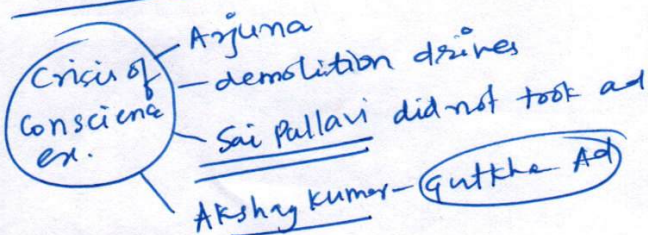 Crisis of
Conscience
ex.
Arjuna
- demolition drives
Sai Pallavi did not took ad
Akshay Kumar - Gutkha Ad